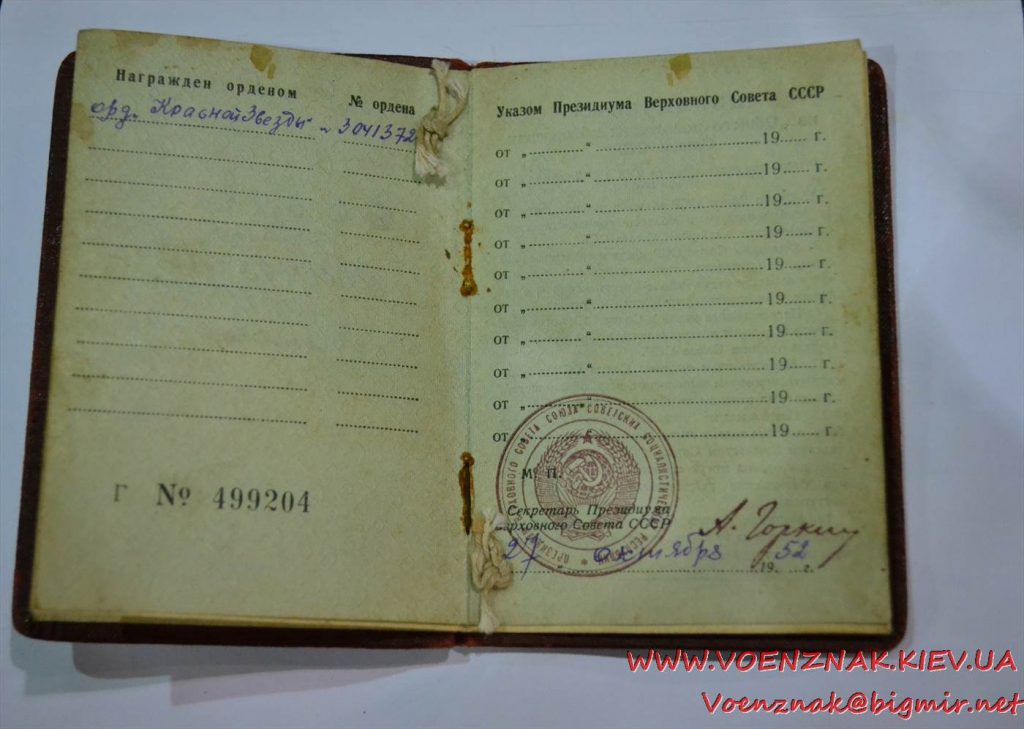 Награжден орденом № ордена
орд. "Красной Звезды" № 3041372
Г № 499204
Указом Президиума Верховного Совета СССР
от „ “ 19 г.
от „ “ 19 г.
от „ “ 19 г.
от „ “ 19 г.
от „ “ 19 г.
от „ “ 19 г.
от „ “ 19 г.
от „ “ 19 г.
от „ “ 19 г.
от „ “ 19 г.
М. П.
Секретарь Президиума
Верховного Совета СССР
А. Горкин
27 октября 1952 г.
СОВЕТА СОЮЗА СОВЕТСКИХ
WWW.VOENZNAK.KIEV.UA
Voenznak@bigmir.net